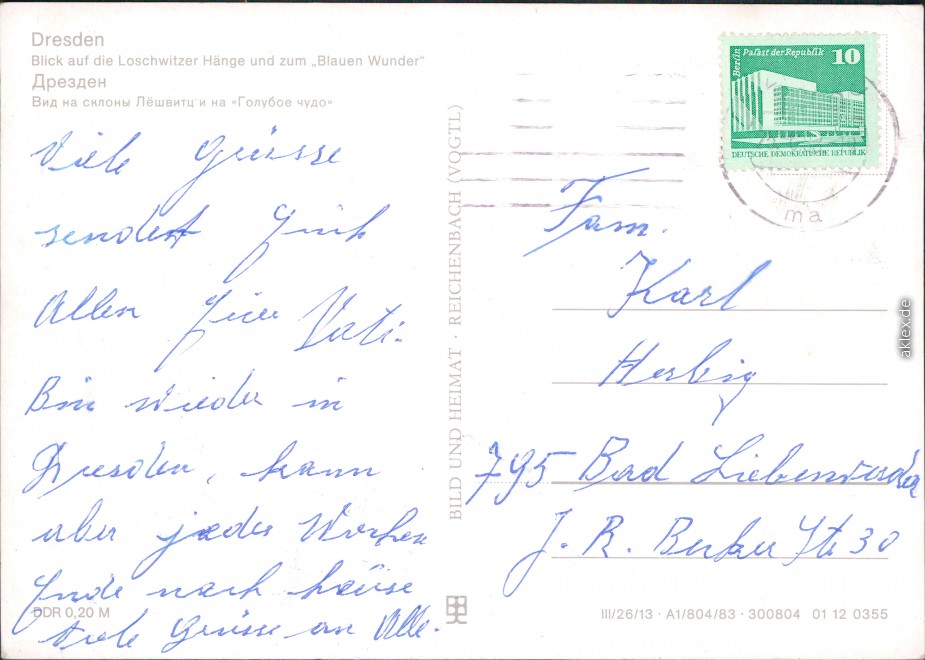 Dresden
Blick auf die Loschwitzer Hänge und zum „Blauen Wunder"
Дрезден
Вид на склоны Лёшвитц'и на «Голубое чудо»
Viele Grüsse
sendet Euch
Allen Euer Vati.
Bin wieder in
Dresden, kann
aber jedes Wochen
Ende nach hause
Viele Grüsse an Alle.
DDR 0,20 M
BILD UND HEIMAT · REICHENBACH (VOGTL)
Berlin Palast der Republik 10
DEUTSCHE DEMOKRATISCHE REPUBLIK
ma
Fam.
Karl
Herbig
795 Bad Liebenwerda
J. R. Becher Str 30
III/26/13 · A1/804/83 · 300804 01 12 0355
aklex.de